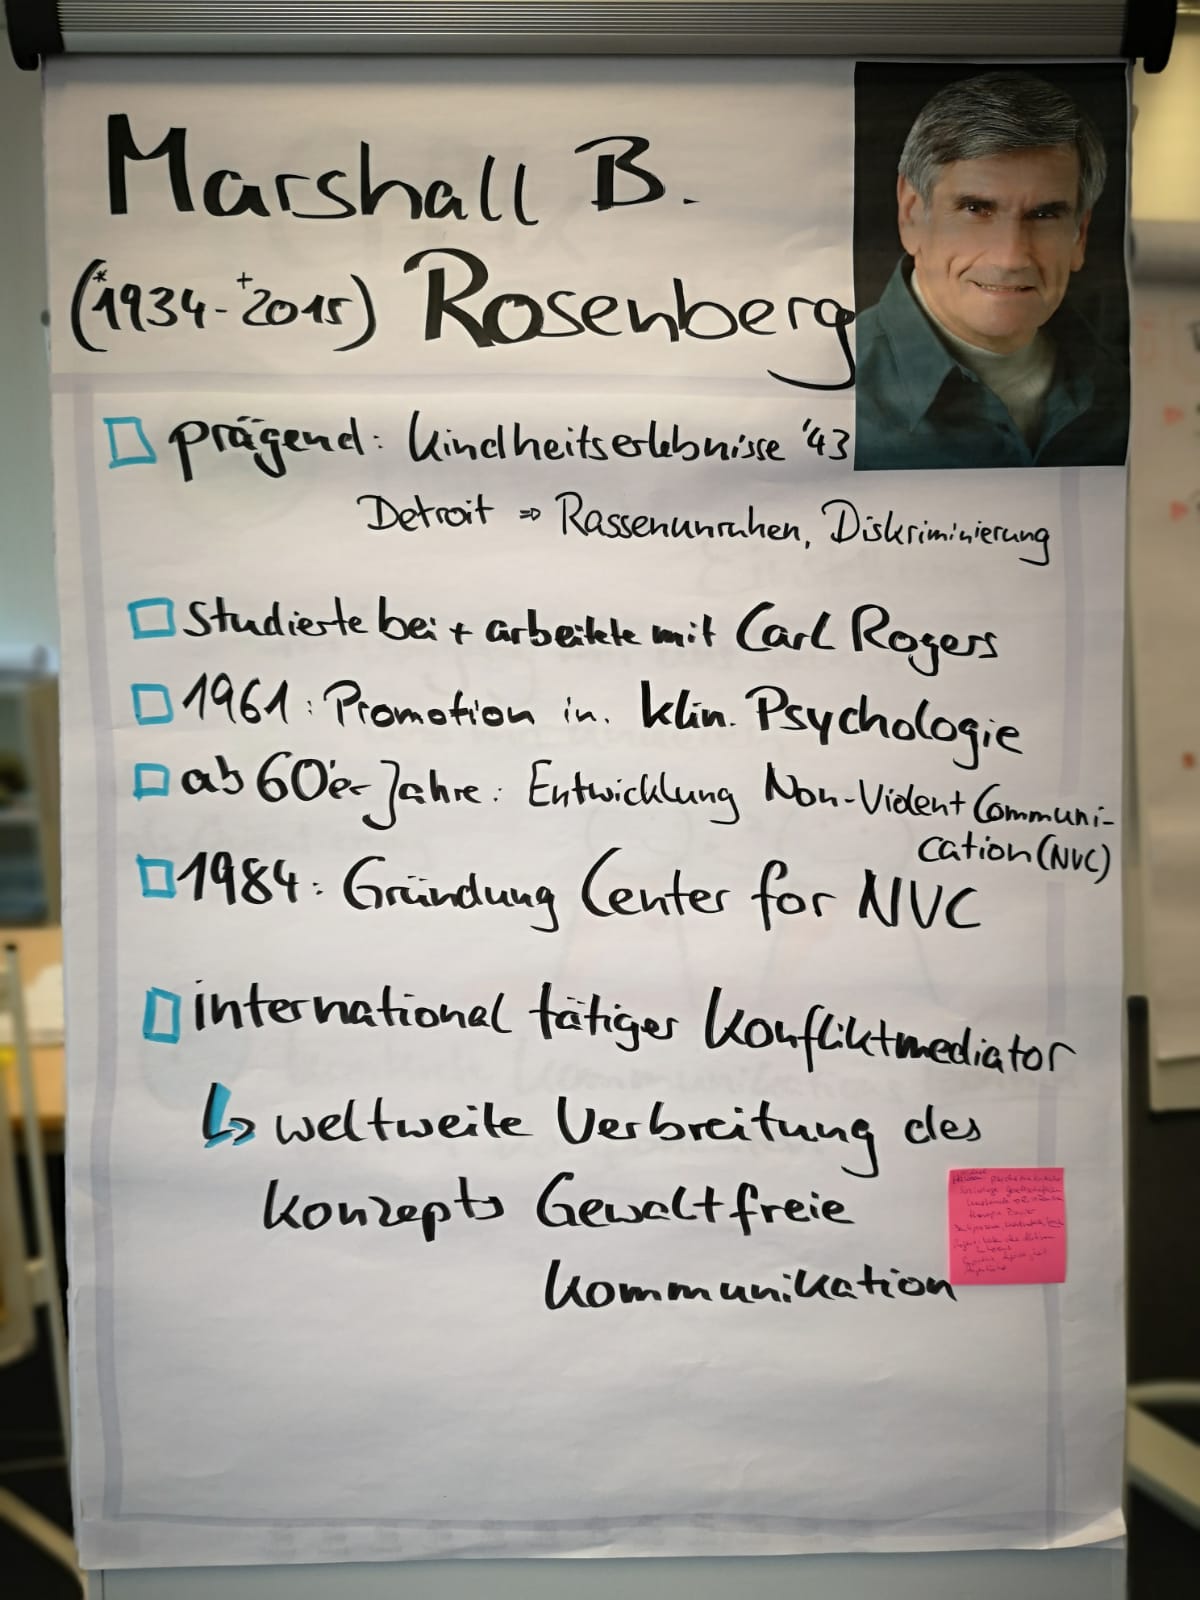 Marshall B.
(*1934-†2015) Rosenberg
prägend: Kindheitserlebnisse '43
Detroit ⇒ Rassenunruhen, Diskriminierung
Studierte bei + arbeitete mit Carl Rogers
1961: Promotion in. klin. Psychologie
ab 60'er Jahre: Entwicklung Non-Violent Communi-
cation (NVC)
1984: Gründung Center for NVC
international tätiger Konfliktmediator
↳ weltweite Verbreitung des
Konzepts Gewaltfreie
Kommunikation